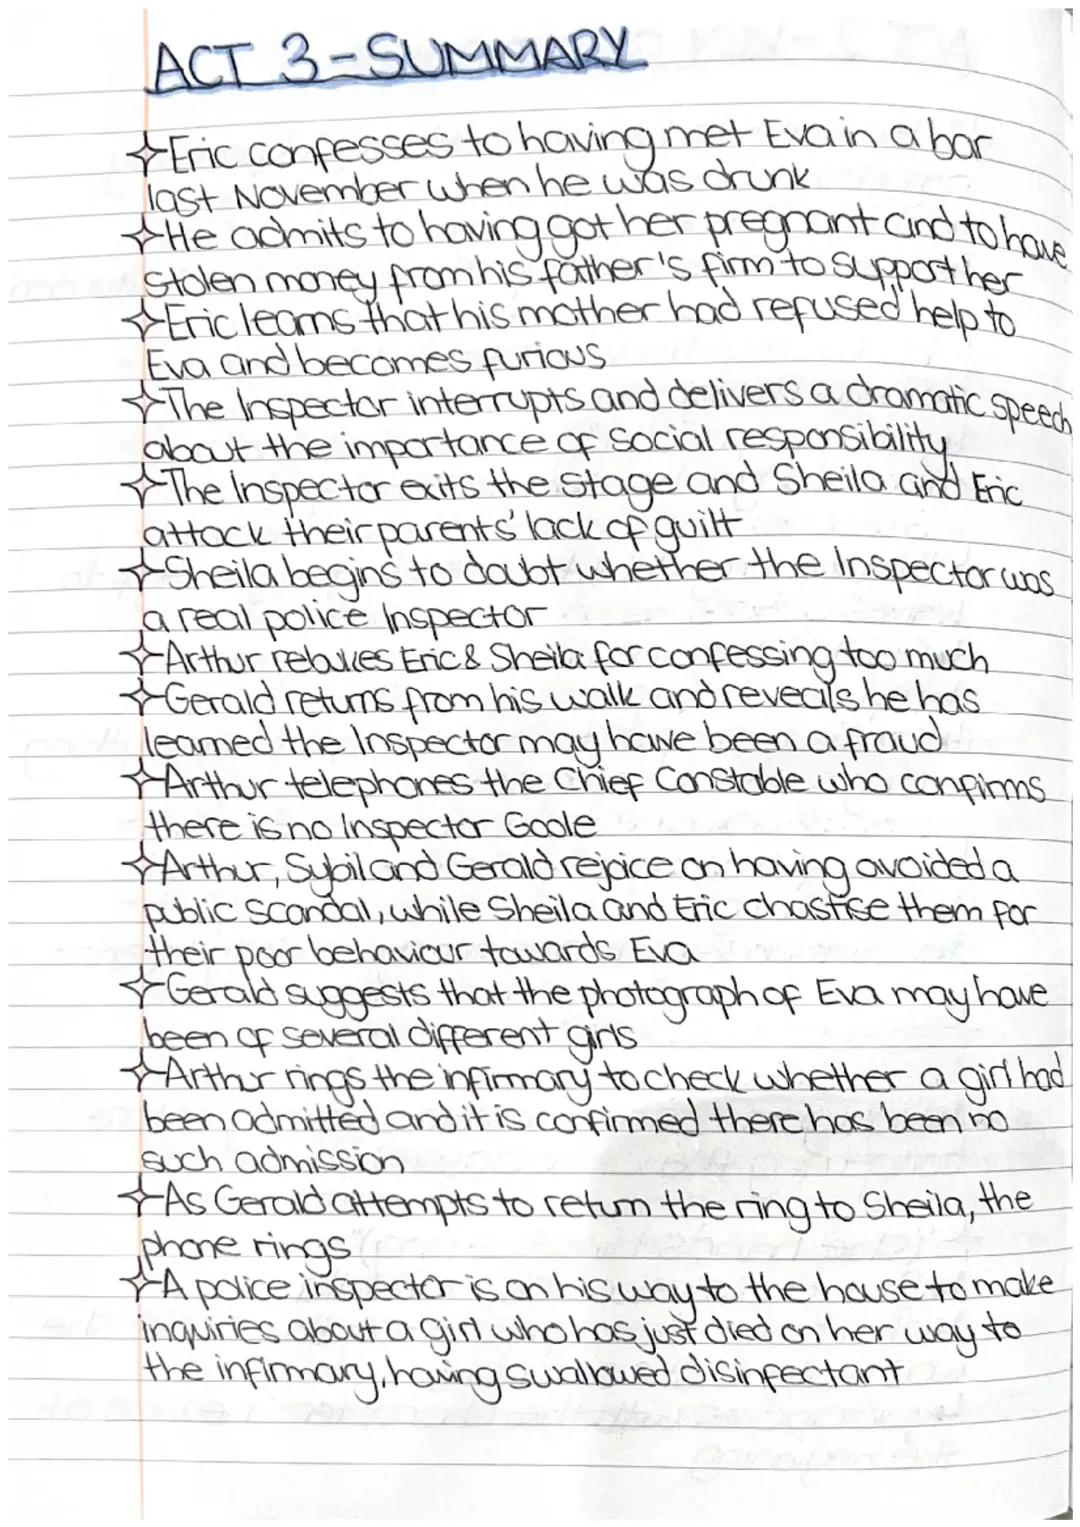 ACT 3-SUMMARY
Eric confesses to having met Eva in a bar
last November when he was drunk
He admits to having got her pregnant and to have
stolen money from his father's firm to support her
Eric learns that his mother had refused help to
Eva and becomes furious
The Inspector interrupts and delivers a dramatic speech
about the importance of social responsibility
The Inspector exits the stage and Sheila and Eric
attack their parents' lack of guilt
Sheila begins to doubt whether the Inspector was
a real police Inspector
Arthur rebukes Eric & Sheila for confessing too much
Gerald returns from his walk and reveals he has
learned the Inspector may have been a fraud
Arthur telephones the Chief Constable who confirms
there is no Inspector Goole
Arthur, Sybil and Gerald rejoice on having avoided a
public scandal, while Sheila and Eric chastise them for
their poor behaviour towards Eva
Gerald suggests that the photograph of Eva may have
been of several different girls
Arthur rings the infirmary to check whether a girl had
been admitted and it is confirmed there has been no
such admission
As Gerald attempts to return the ring to Sheila, the
phone rings
A police inspector is on his way to the house to make
inquiries about a girl who has just died on her way to
the infirmary, having swallowed disinfectant